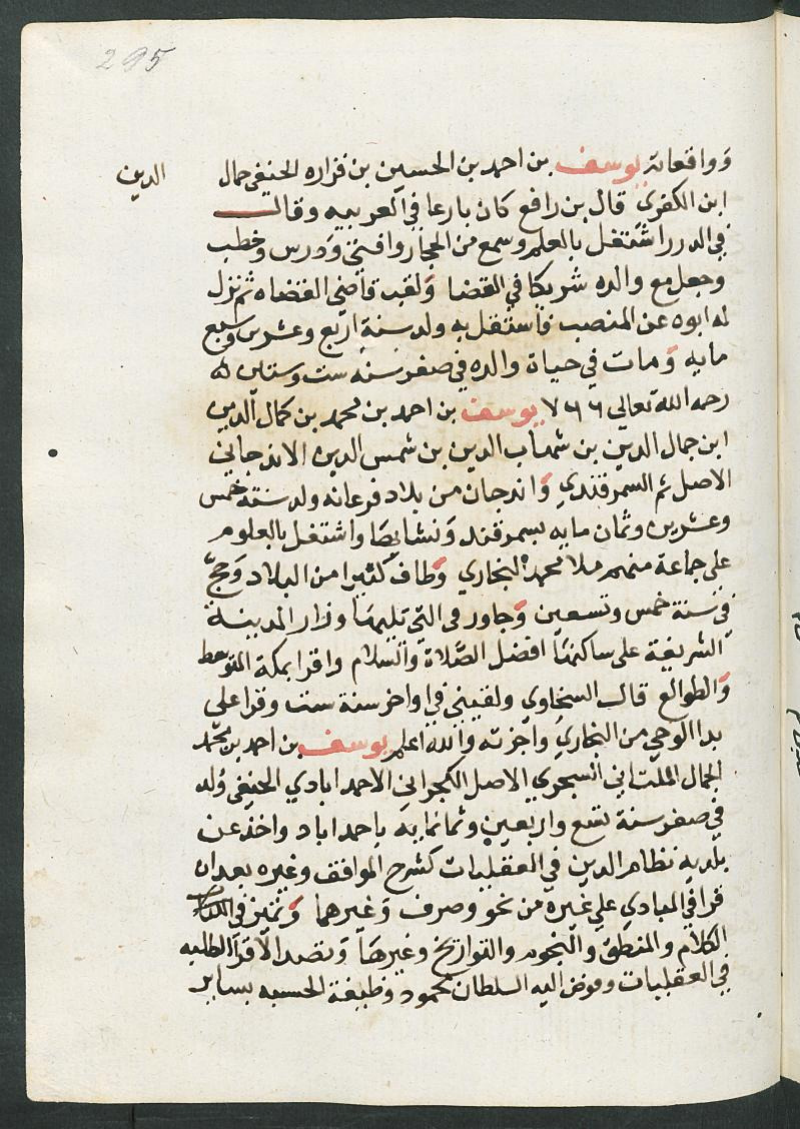 295
وواقعاته يوسف بن احمد بن الحسين بن فزاره الحنفي جمال الدين
ابن الكفري قال بن رافع كان بارعا في العربيه وقال
في الدرر اشتغل بالعلم وسمع من الحجار وافتى ودرس وخطب
وجعل مع والده شريكا في القضا ولقب قاضي القضاه ثم نزل
له ابوه عن المنصب فاستقل به ولد سنة اربع وعشرين وسبع
مايه ومات في حياة والده في صفر سنه ست وستين
رحمه الله تعالى ٧٦٦ يوسف بن احمد بن محمد بن كمال الدين
ابن جمال الدين بن شهاب الدين بن شمس الدين الاندجاني
الاصل ثم السمرقندي واندجان من بلاد فرغانه ولد سنة خمس
وعشرين وثمان مايه بسمرقند ونشا بها واشتغل بالعلوم
على جماعة منهم ملا محمد البخاري وطاف كثيرا من البلاد وحج
في سنة خمس وتسعين وجاور في التي تليها وزار المدينة
الشريفة على ساكنها افضل الصلاة والسلام واقرا بمكة المتوسط
والطوالع قال السخاوي ولقيني في اواخر سنة ست وقرا على
بدا الوحي من البخاري واجزته والله اعلم يوسف بن احمد بن محمد
الجمال الملتاني السجوي الاصل الكجراتي الاحمد ابادي الحنفي ولد
في صفر سنة تسع واربعين وثمانمايه باحمداباد واخذ عن
بلديه نظام الدين في العقليات كشرح المواقف وغيره بعد ان
قرا في المبادي على غيره من نحو وصرف وغيرهما وتميز في
الكلام والمنطق والنجوم والتواريخ وغيرها وتصد الاقرا الطلبه
في العقليات وفوض اليه السلطان محمود وظيفة الحسبه بساير